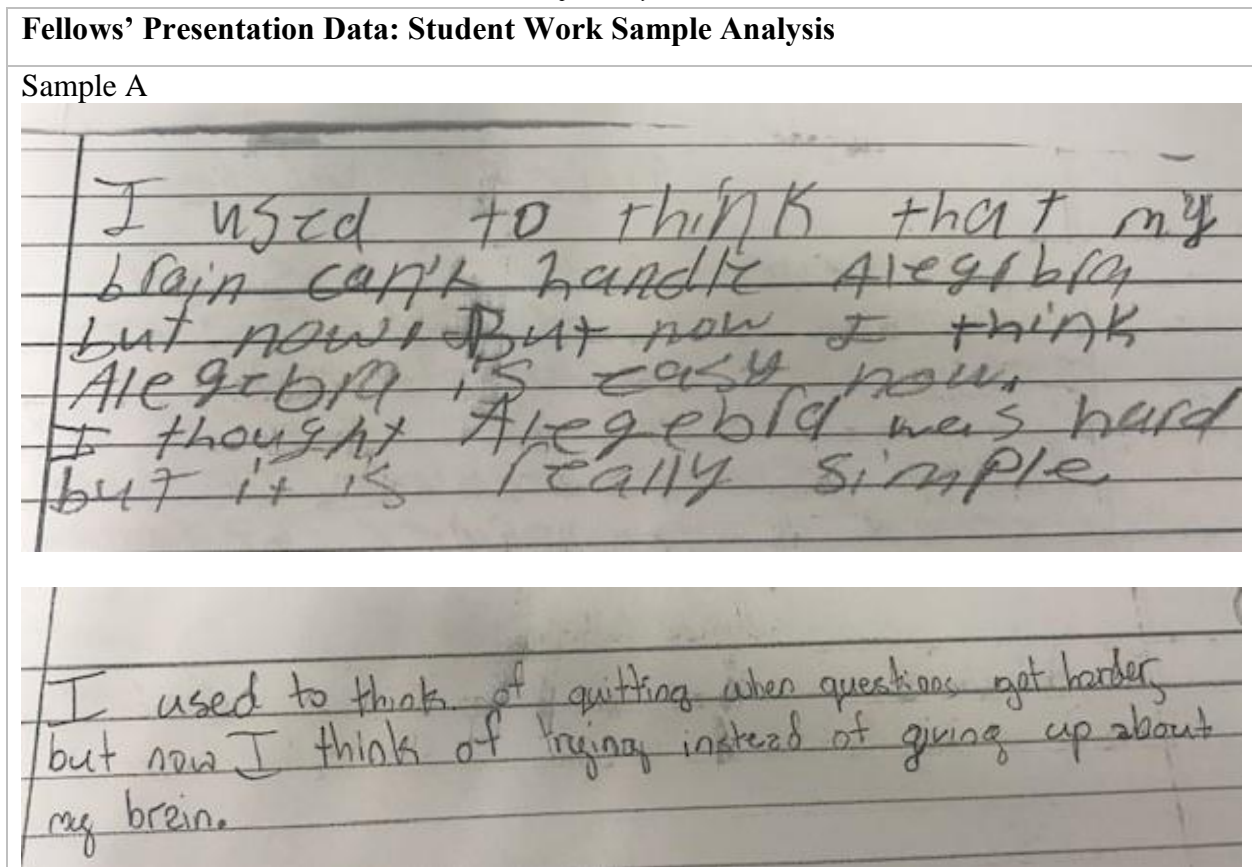 Fellows' Presentation Data: Student Work Sample Analysis
Sample A
I used to think that my
brain can't handle Alegrbra
but now. But now I think
Alegebra is easy now.
I thought Alegebra was hard
but it is really simple
I used to think of quitting when questions get harder,
but now I think of trying instead of giving up about
my brain.